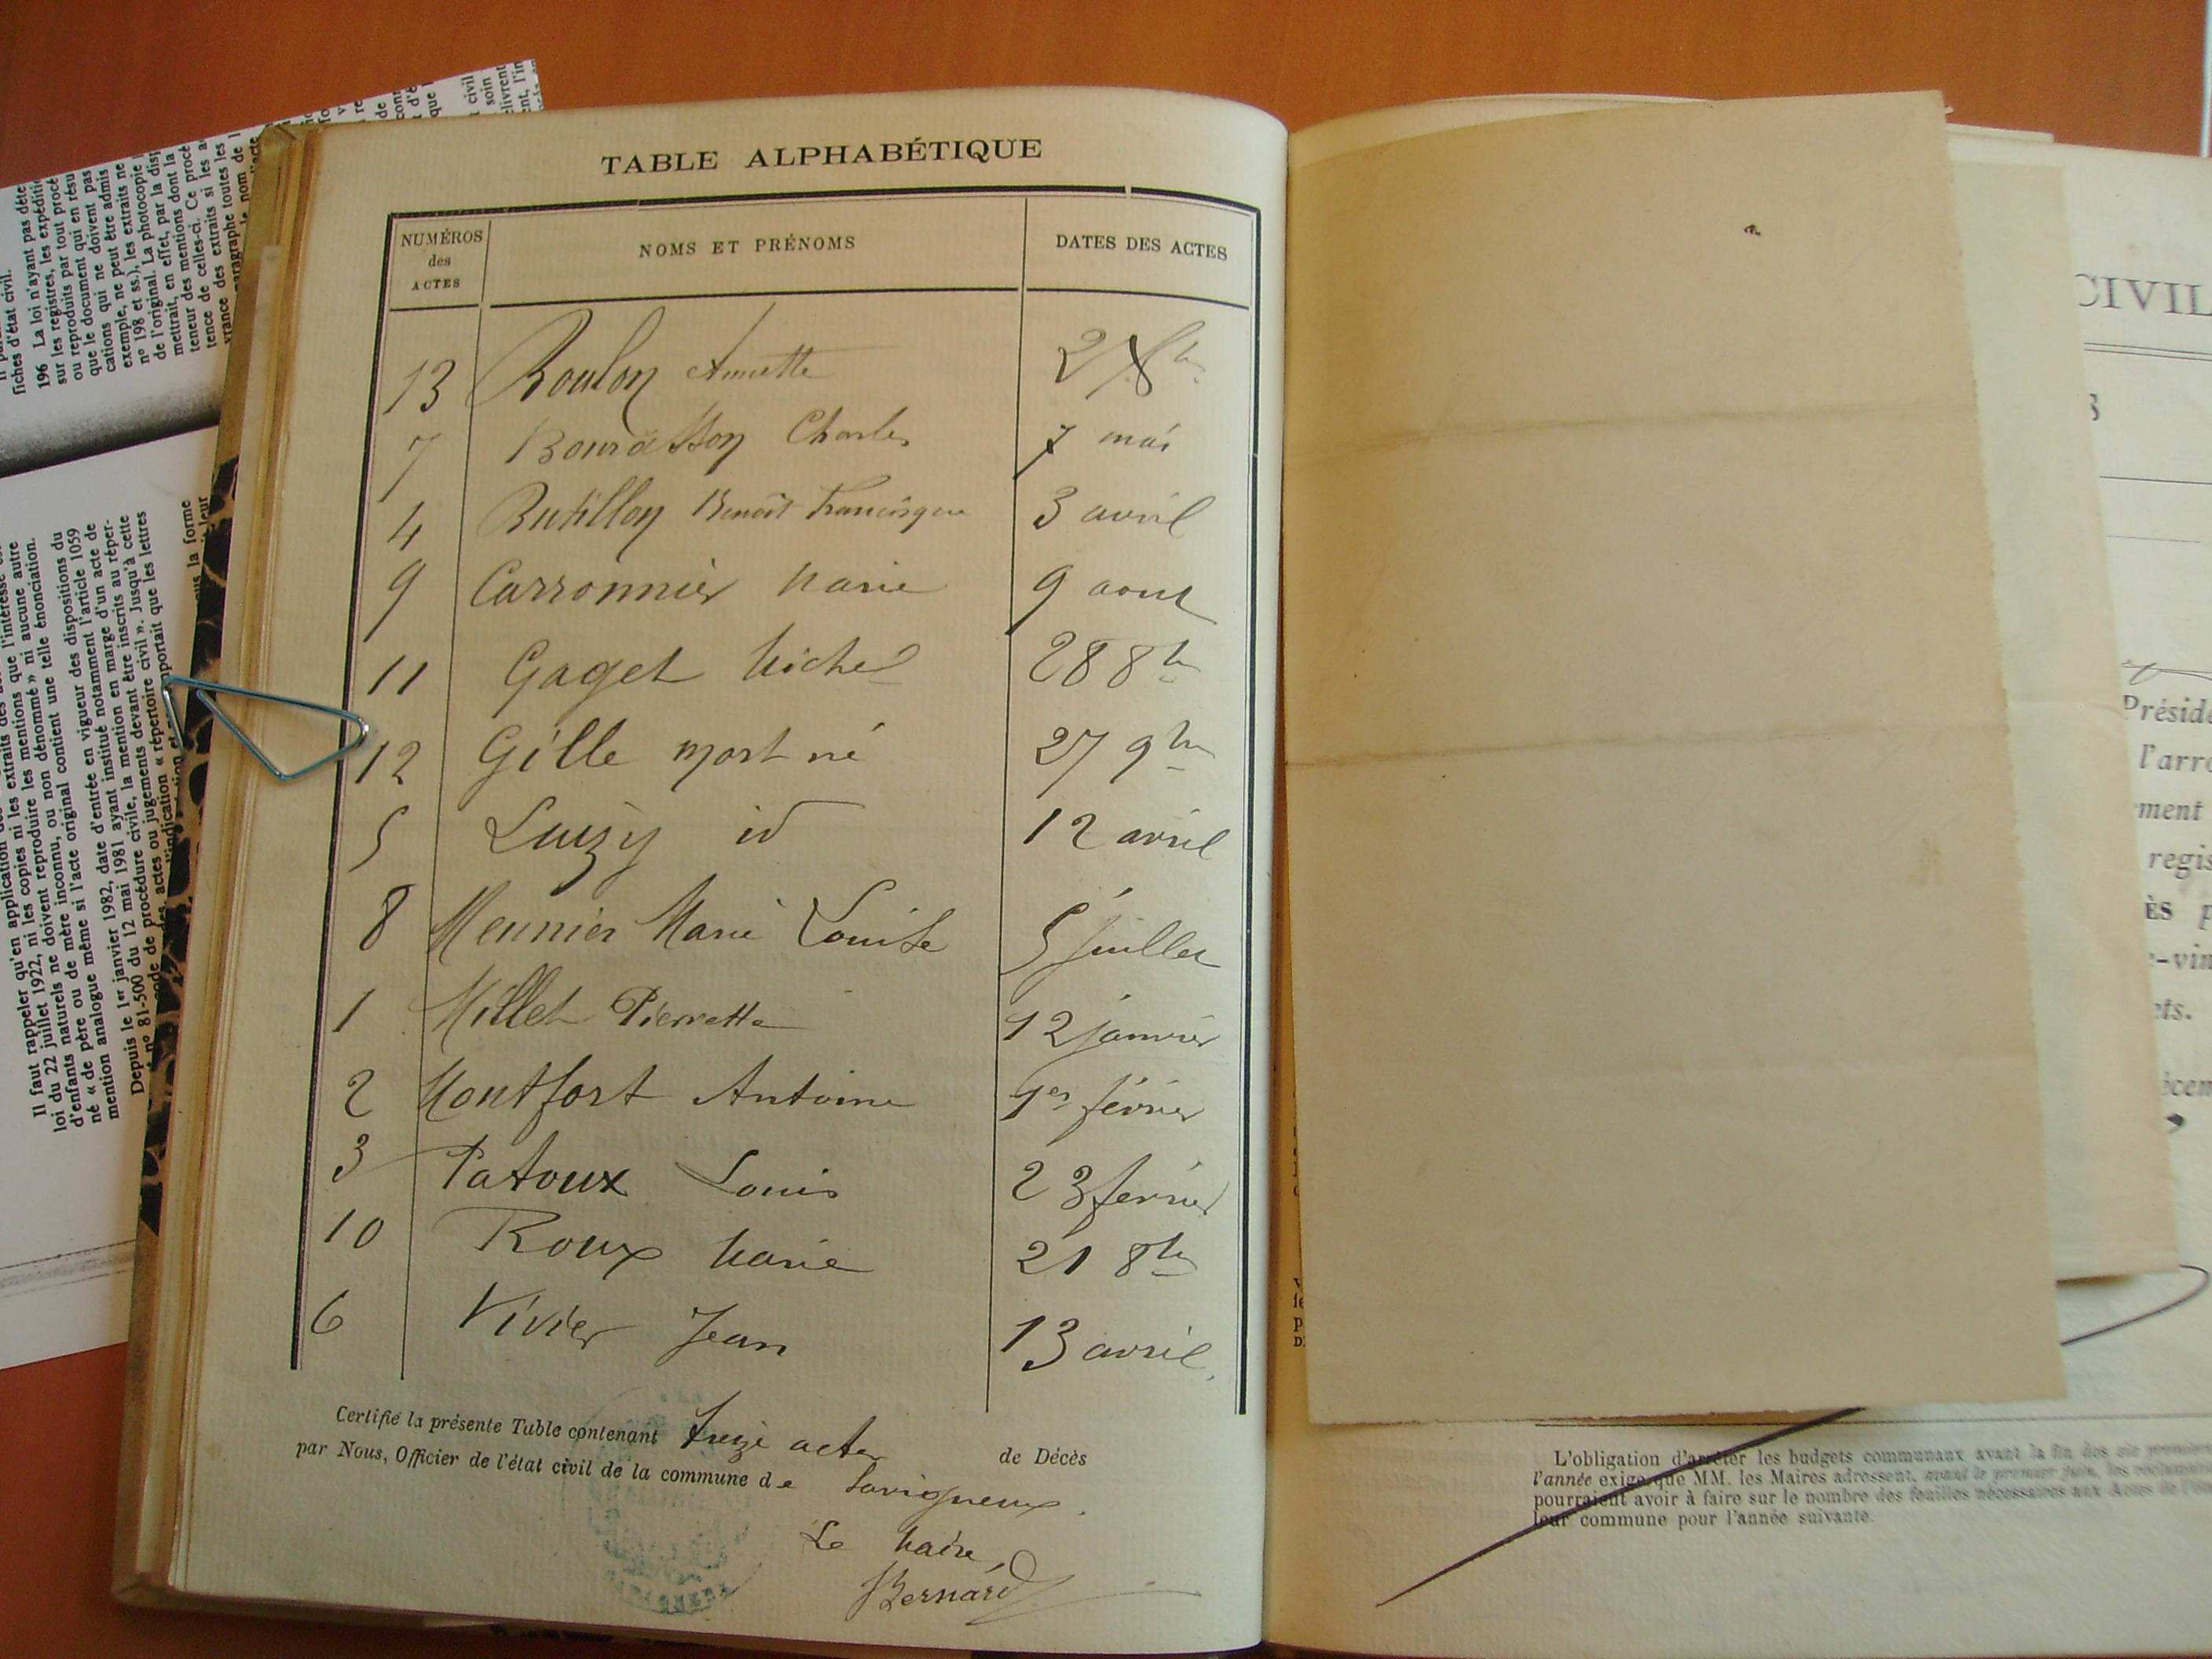 fiches d'état civil.
196 La loi n'ayant pas déte
sur les registres, les expéditi
ou reproduits par tout procé
que le document qui en résu
cations qui ne doivent pas
exemple, ne peut être admis
nº 198 et ss.), les extraits ne
de l'original. La photocopie
mettrait, en effet, par la disp
teneur des mentions dont la
tence de celles-ci. Ce procé
vrance des extraits si les a
paragraphe toutes les
le nom de
l'acte
Il faut rappeler qu'en application des
loi du 22 juillet 1922, ni les copies ni les extraits des
d'enfants naturels ne doivent reproduire les mentions que l'intéressé
né « de père ou de mère inconnu, ou non dénommé » ni aucune autre
mention analogue même si l'acte original contient une telle énonciation.
Depuis le 1er janvier 1982, date d'entrée en vigueur des dispositions du
nº 81-500 du 12 mai 1981 ayant institué notamment l'article 1059
code de procédure civile, la mention en marge d'un acte de
des actes ou jugements devant être inscrits au réper-
l'indication « répertoire civil ». Jusqu'à cette
portait que les lettres
sous la forme
leur
TABLE ALPHABÉTIQUE
NUMÉROS des ACTES NOMS ET PRÉNOMS DATES DES ACTES
13 Boulon Annette 2 Xbre
7 Bourasson Charles 7 mai
4 Butillon Benoît Francisque 3 avril
9 Carronnier Marie 9 aout
11 Gaget Michel 28 8bre
12 Gille mort né 27 9bre
5 Luizy id 12 avril
8 Meunier Marie Louise 5 juillet
1 Millet Pierrette 12 janvier
2 Montfort Antoine 1er février
3 Patoux Louis 23 fevrier
10 Roux Marie 21 8bre
6 Vivier Jean 13 avril.
Certifié la présente Table contenant treize actes de Décès
par Nous, Officier de l'état civil de la commune de Savigneux.
Le Maire,
Bernard
CIVIL
S
Préside
l'arro
ment
regis
ÈS P
-vin
ets.
écem
L'obligation d'arrêter les budgets communaux avant la fin des six premiers
l'année exige que MM. les Maires adressent, avant le premier juin, les réclamations
pourraient avoir à faire sur le nombre des feuilles nécessaires aux Actes de l'état
leur commune pour l'année suivante.